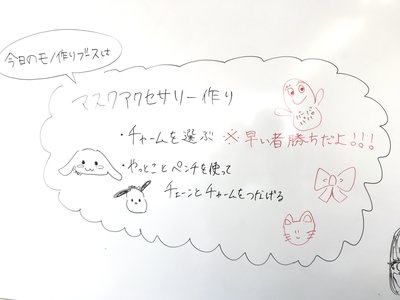 今日のモノ作りブースは
マスクアクセサリー作り
・チャームを選ぶ ※早い者勝ちだよ!!!
・やっとことペンチを使って
チェーンとチャームをつなげる